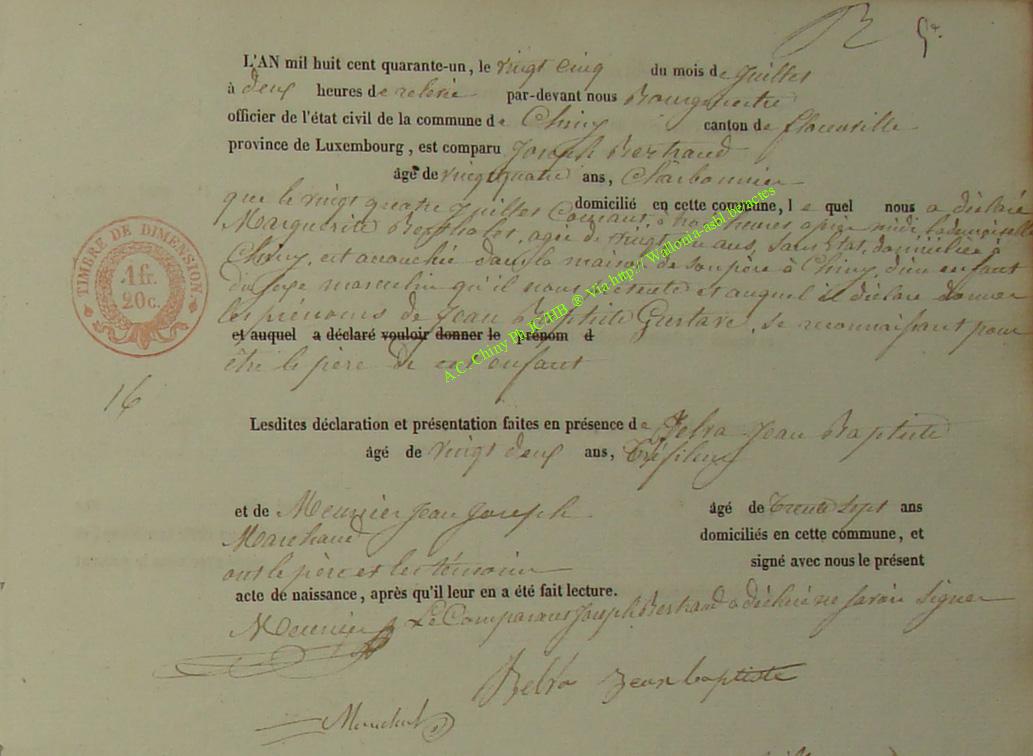 R 5a.
L'AN mil huit cent quarante-un, le vingt cinq du mois de juillet
à deux heures de relevée par-devant nous Bourgmestre
officier de l'état civil de la commune de Chiny canton de florenville
province de Luxembourg, est comparu Joseph Bertrand
âgé de vingt quatre ans, Charbonnier
domicilié en cette commune, le quel nous a déclaré
que le vingt quatre juillet courant, à heures après midi la demoiselle
Marguerite agée de vingt ans, sans Etat, domiciliée à
Chiny, est accouchée dans la maison de son père à Chiny, d'un enfant
du sexe masculin qu'il nous présente et auquel il déclare donner
les prénoms de Jean Baptiste Gustave, se reconnaissant pour
et auquel a déclaré vouloir donner le prénom d
être le père de cet enfant
TIMBRE DE DIMENSION
1 fr.
20 c.
16
Lesdites déclaration et présentation faites en présence de Jean Baptiste
âgé de vingt deux ans, Tréfileur
et de Meunier Jean Joseph âgé de trente sept ans
Marchand domiciliés en cette commune, et
ont le père et les témoins signé avec nous le présent
acte de naissance, après qu'il leur en a été fait lecture.
Le Comparant Joseph Bertrand a déclaré ne savoir signer
Meunier
Jean baptiste
A.C. Chiny Ph JC/HB ® Via http:// Wallonia-asbl be/actes